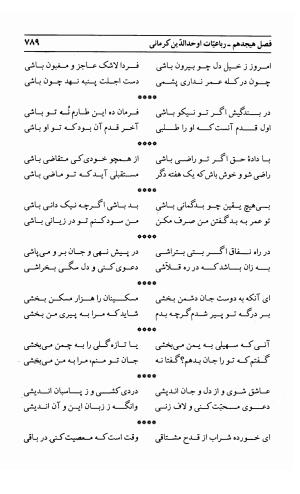 فصل هیجدهم - رباعیّات اوحدالدّین کرمانی ۷۸۹
امروز ز خیل دل چو بیرون باشی فردا لاشک عاجز و مغبون باشی
چون در کله عمر نداری پشمی دست اجلت پنبه نهد چون باشی
****
در بندگیش اگر تو نیکو باشی فرمان ده این طارم نُه تو باشی
اول قدم آنست که او را طلبی آخر قدم آن بود که تو او باشی
****
با دادهٔ حق اگر تو راضی باشی از همچو خودی کی متقاضی باشی
راضی شو و خوش باش که یک هفته دگر مستقبلی آید که تو ماضی باشی
****
بی‌هیچ یقین چو بدگمانی باشی بد باشی اگرچه نیک دانی باشی
تو عمر به بد گفتن من صرف مکن من سود کنم تو در زیانی باشی
****
در راه نفاق اگر بتی بتراشی در پیش نهی و جان بر و می‌پاشی
به زان باشد که در ره قلاّشی دعوی کنی و دل سگی بخراشی
****
ای آنکه به دوست جان دشمن بخشی مسکینان را هزار مسکن بخشی
بر درگه تو پیر شدم گرچه بدم شاید که مرا به پیری من بخشی
****
آنی که سهیلی به یمن می‌بخشی یا تازه گلی را به چمن می‌بخشی
گفتم که تو را جان بدهم؟ گفتا نه جان تو منم، مرا به من می‌بخشی
****
عاشق شوی و از دل و جان اندیشی دزدی کنی و ز پاسبان اندیشی
دعوی محبّت کنی و لاف زنی وانگه ز زبان این و آن اندیشی
****
ای خورده شراب از قدح مشتاقی وقت است که معصیت کنی در باقی